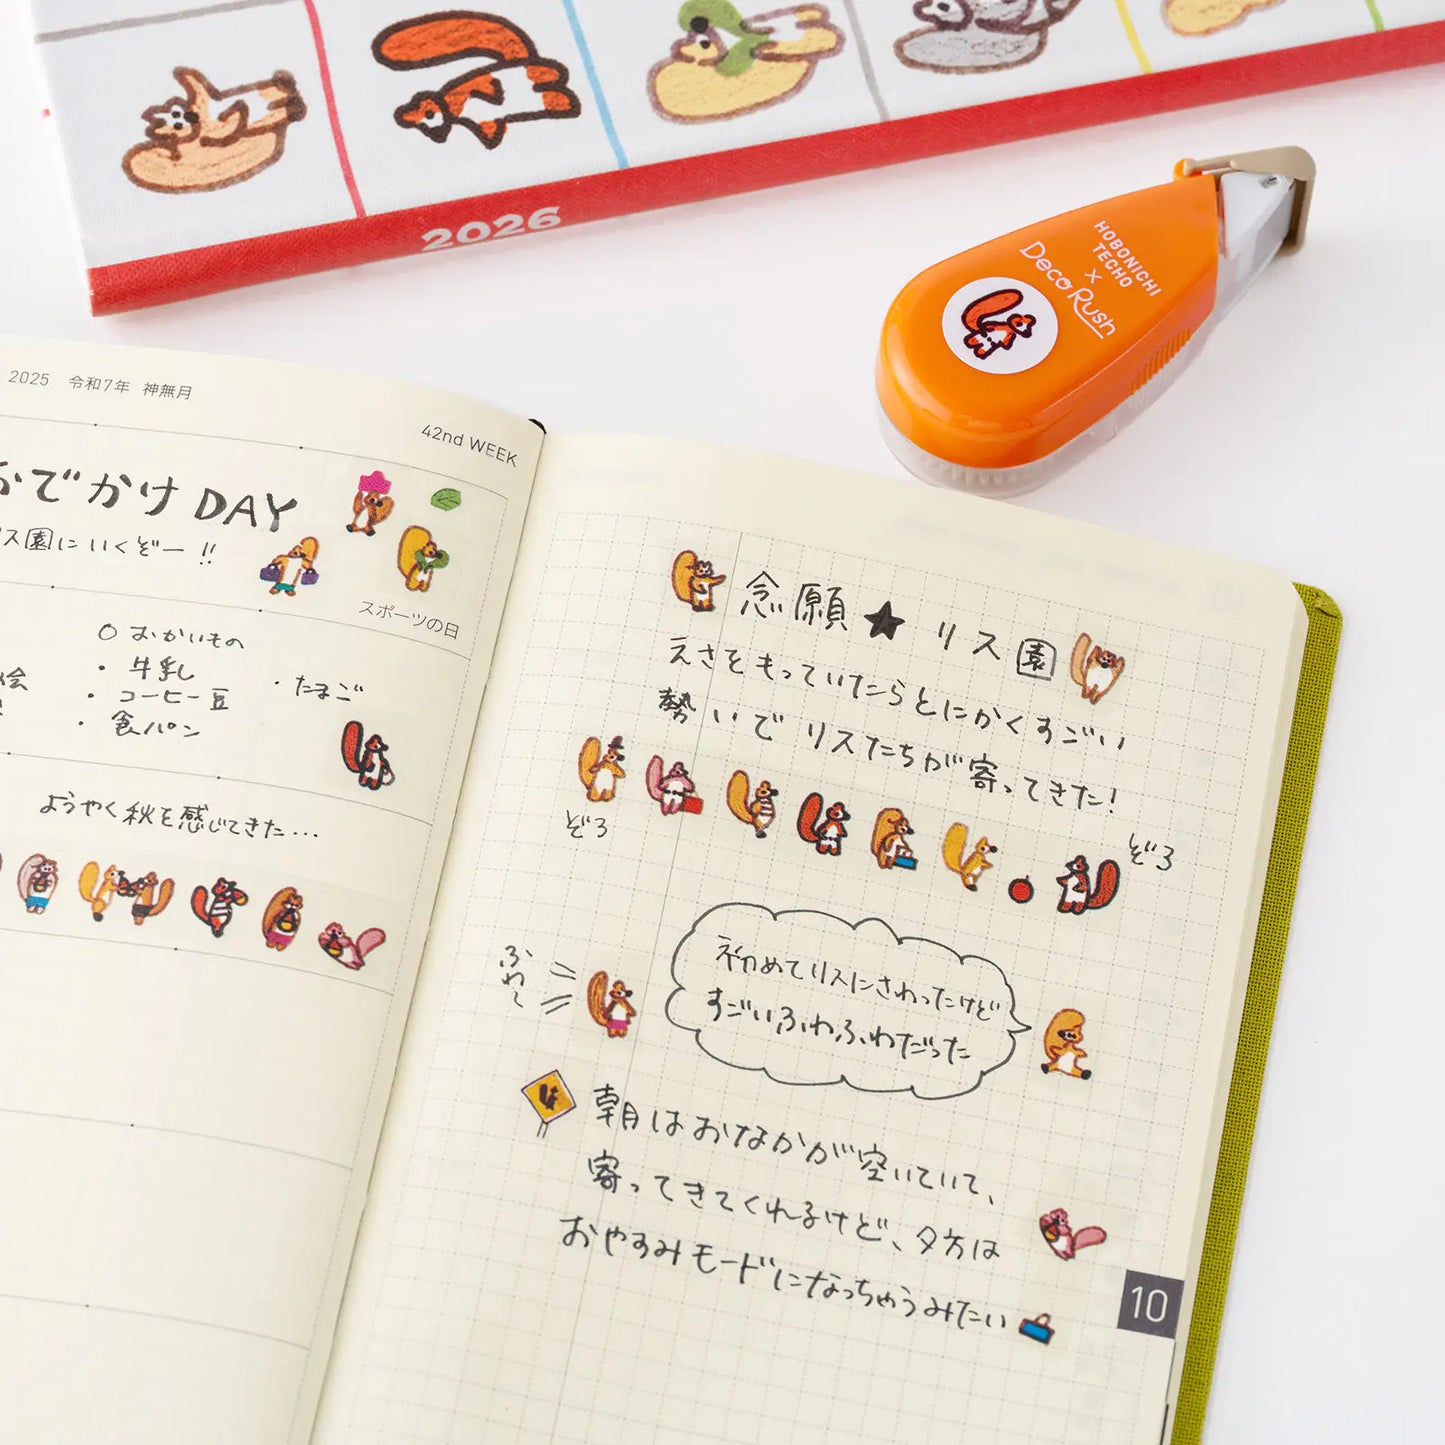 2026
HOBONICHI
TECHO
×
Deco Rush
2025 令和7年 神無月
42nd WEEK
おでかけ DAY
ス園にいくぞー!!
スポーツの日
○ おかいもの
・牛乳
・コーヒー豆
・食パン
・たまご
絵
ようやく秋を感じてきた…
念願★リス園
えさをもっていたらとにかくすごい
勢いでリスたちが寄ってきた!
ぞろ
ぞろ
ふわ〜
初めてリスにさわったけど
すごいふわふわだった
朝はおなかが空いていて、
寄ってきてくれるけど、夕方は
おやすみモードになっちゃうみたい
10